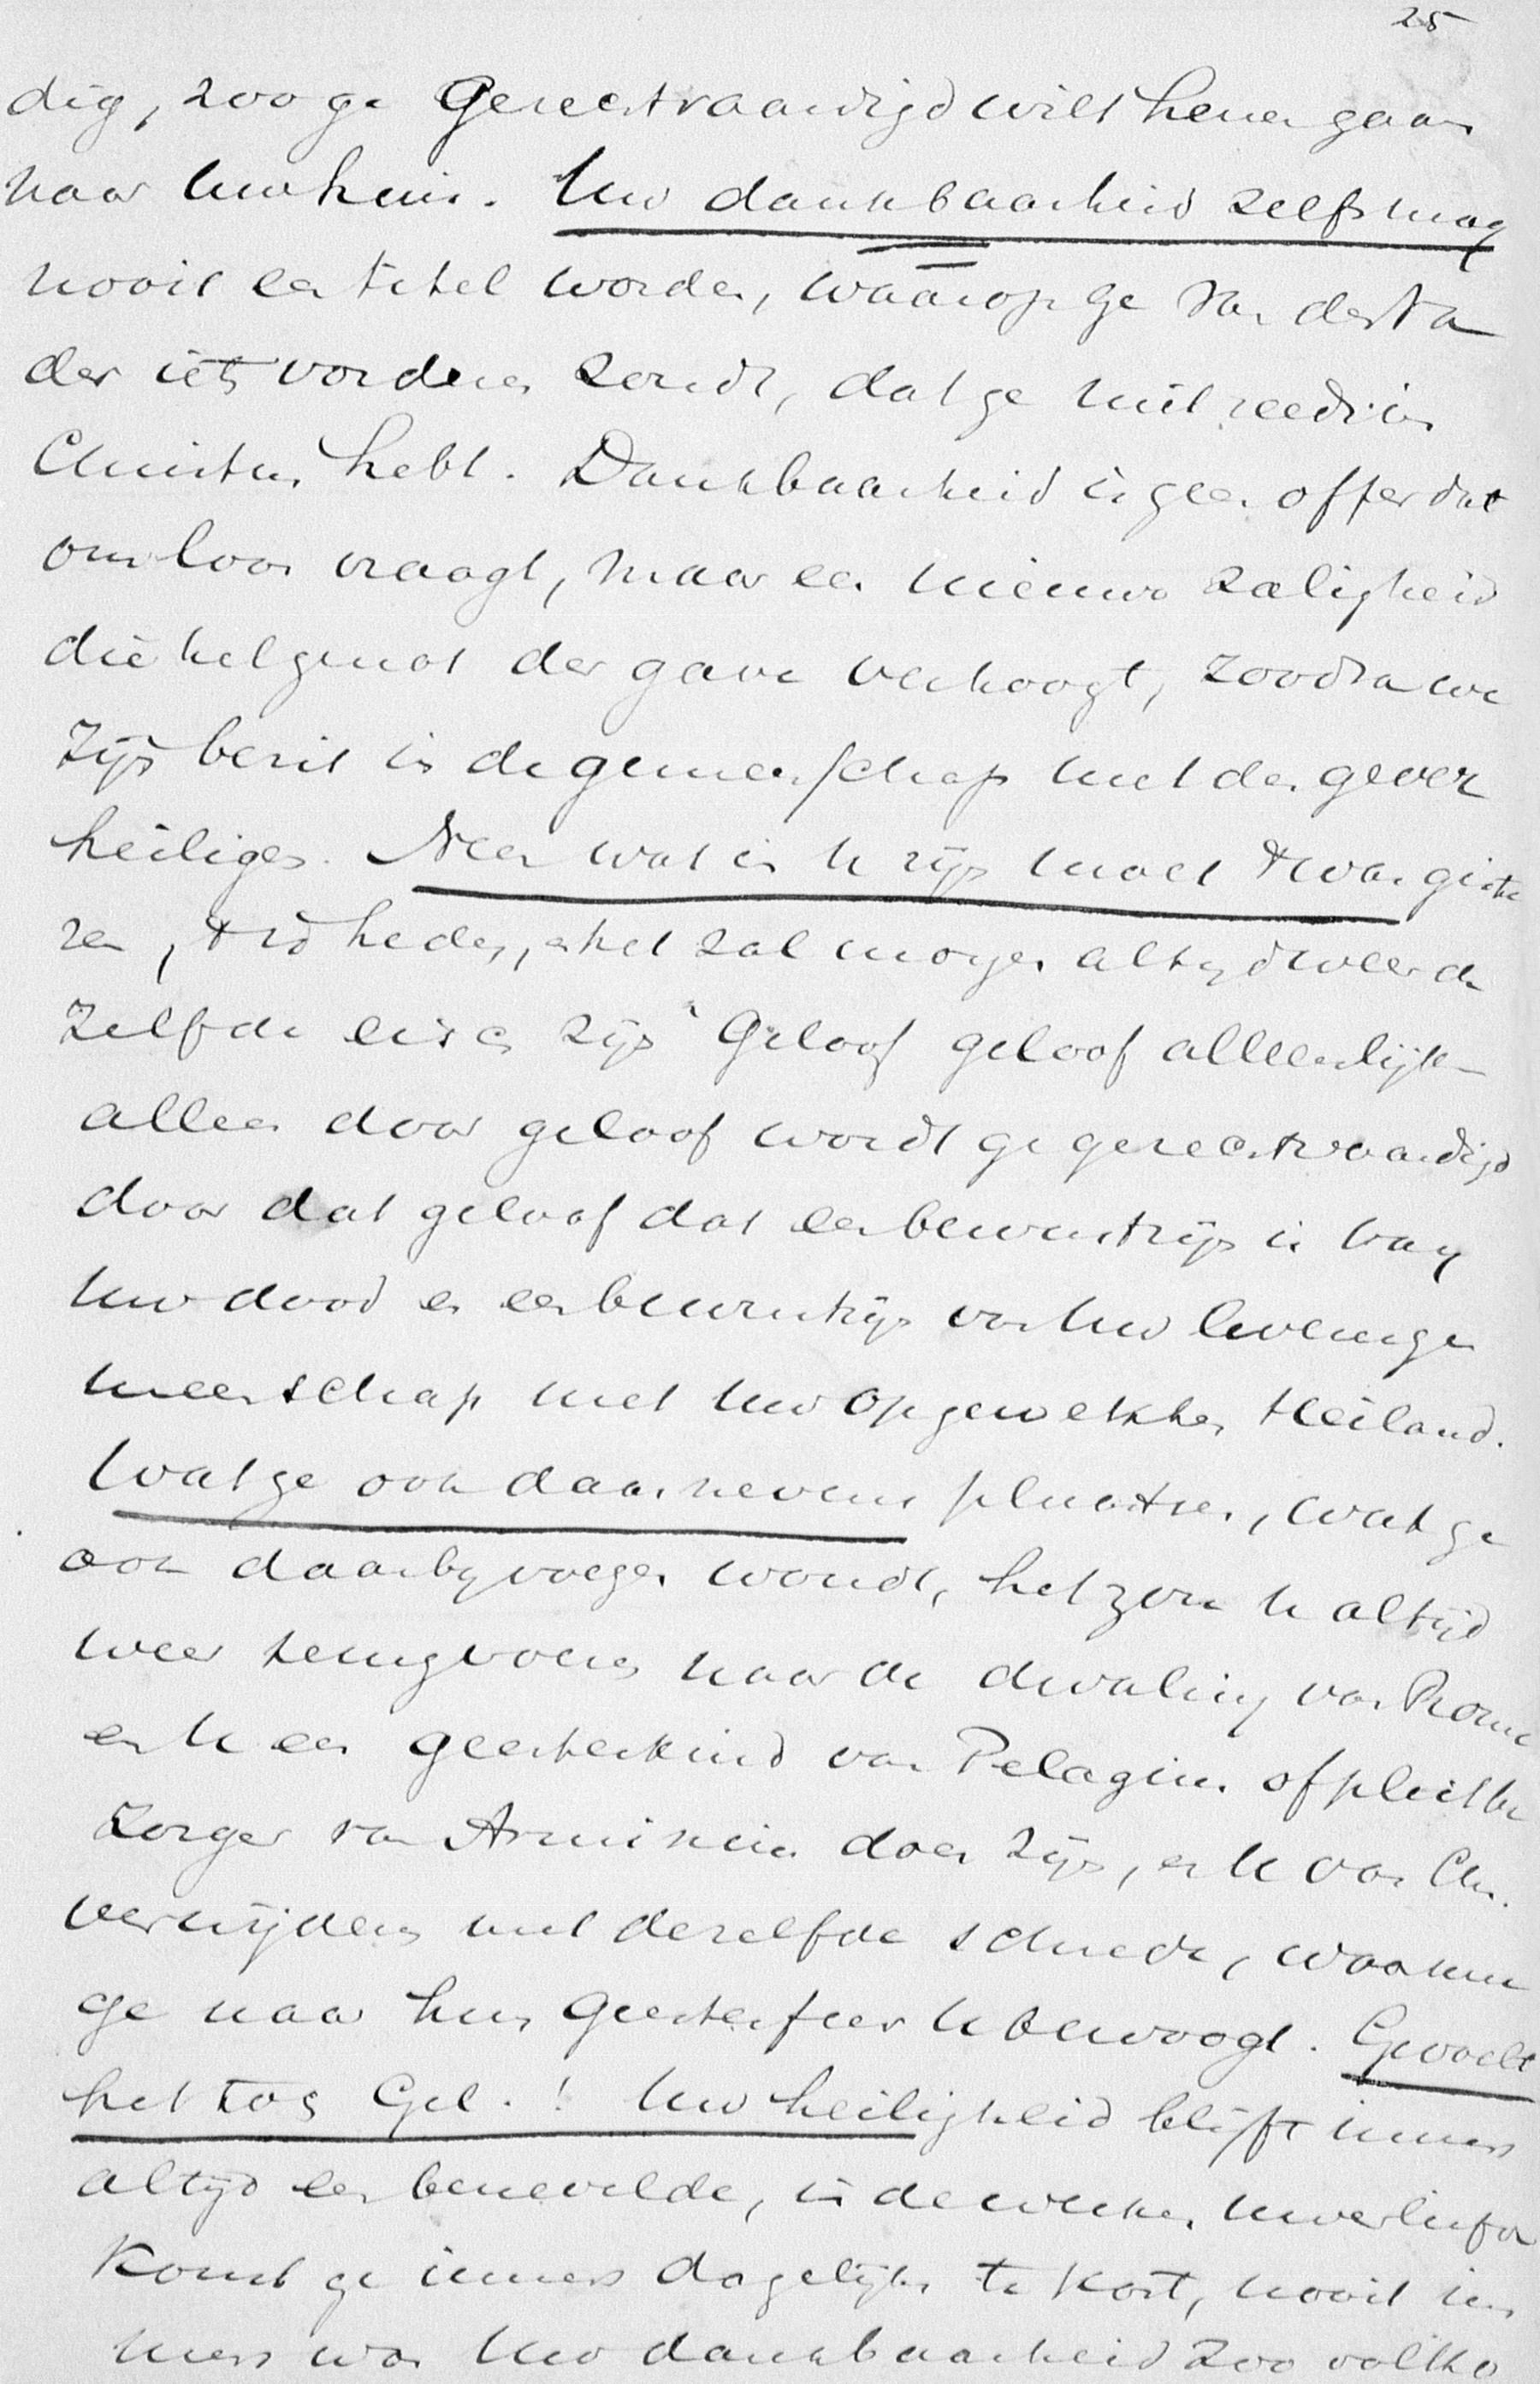 25
dig, zoo ge Gerechtvaardigd wilt henen gaan
naar Uw huis. Uw dankbaarheid zelfs mag
nooit een titel worden, waarop ge van den Va
der iets vorderen zoudt, dat ge niet reeds in
Christus hebt. Dankbaarheid is geen offer dat
om loon vraagt, maar een nieuwe zaligheid
die het genot der gave verhoogt, zoodra we
zijn bezit in de gemeenschap met den gever
heiligen. Neen wat in U zijn moet & wan giste
ren, & is heden, en het zal morgen altijd weer de
zelfde eisch zijn "Geloof geloof alleenlijk
alleen door geloof wordt ge gerechtvaardigd
door dat geloof dat een bewustzijn is van
Uw dood en een bewustzijn van Uw levensge
meenschap met Uw opgewekten Heiland.
Wat ge ook daarnevens plaatsen, wat ge
ook daarbij voegen woudt, het zou U altijd
weer terugvoeren naar de dwaling van Rome
en U een geesteskind van Pelagius of pleitbe
zorger van Arminius doen zijn, en U van Chr.
verwijderen met dezelfde schrede, waarmee
ge naar hun Geestesfeer U bewoogt. Gevoelt
het toch Gel.! Uw heiligheid blijft immers
altijd een benevelde, in de werken Uwer liefde
komt ge immers dagelijks te kort, nooit im
mers was Uw dankbaarheid zoo volko